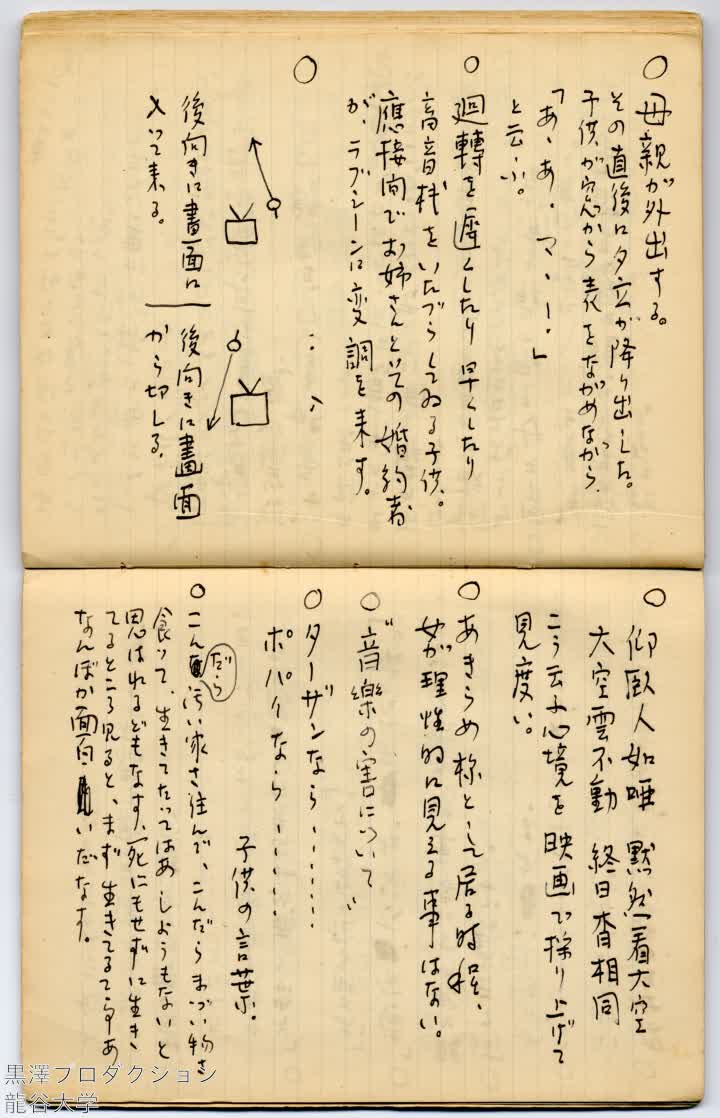 ○ 母親が外出する。
その直後に夕立が降り出した。
子供が窓から表をながめながら、
「あゝあ、マヽー。」
と云ふ。
○ 廻轉を遲くしたり早くしたり
高音
をいたづらしてゐる子供。
應接間でお姉さんと
の婚約者
が、ラブシーンに変調を来す。
○
後向きに畫面に
入って来る。
後向きに畫面
から切れる。
○ 仰臥人如唖 黙然看大空
大空雲不動 終日杳相同
こう云ふ心境を映画で採り上げて
見度い。
○ あきらめ様として居る時程、
女が理性的に見える事はない。
○ 〝音樂の害について〟
○ ターザンなら‥‥‥
ポパイなら‥‥‥
子供の言葉。
○ こんだら汚い家さ住んで、こんだらまづい物さ
食って、生きてたってはあしようもないと
思はれるどもなす、死にもせずに生き
てるところ見ると、まず生きてるてあ
なんぼか面白いだなす。
黒澤プロダクション
龍谷大学